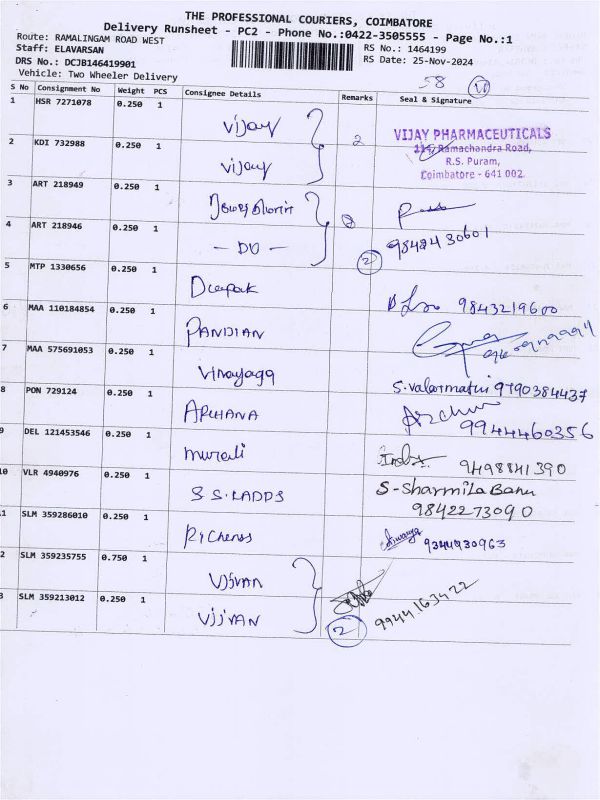 THE PROFESSIONAL COURIERS, COIMBATORE
Delivery Runsheet - PC2 - Phone No.:0422-3505555 - Page No.:1
Route: RAMALINGAM ROAD WEST
RS No.: 1464199
Staff: ELAVARSAN
RS Date: 25-Nov-2024
DRS No.: DCJB146419901
Vehicle: Two Wheeler Delivery
58 10
S No Consignment No Weight PCS Consignee Details Remarks Seal & Signature
1 HSR 7271078 0.250 1 Vijay
2
VIJAY PHARMACEUTICALS
114, Ramachandra Road,
R.S. Puram,
Coimbatore - 641 002.
2 KDI 732988 0.250 1 Vijay
3 ART 218949 0.250 1
2
4 ART 218946 0.250 1 - DO - 2 9842430601
5 MTP 1330656 0.250 1 Deepak 9843219600
6 MAA 110184854 0.250 1 PANDIAN
7 MAA 575691053 0.250 1 Vinayaga S.Valarmathi 9790384437
8 PON 729124 0.250 1 ARCHANA 9944460356
9 DEL 121453546 0.250 1 murali 9498841390
10 VLR 4940976 0.250 1 S S.LADDS S-Sharmila Banu
9842273090
11 SLM 359286010 0.250 1 9344930963
2 SLM 359235755 0.750 1 VJJVAN
3 SLM 359213012 0.250 1 VJJVAN 2 9944163422